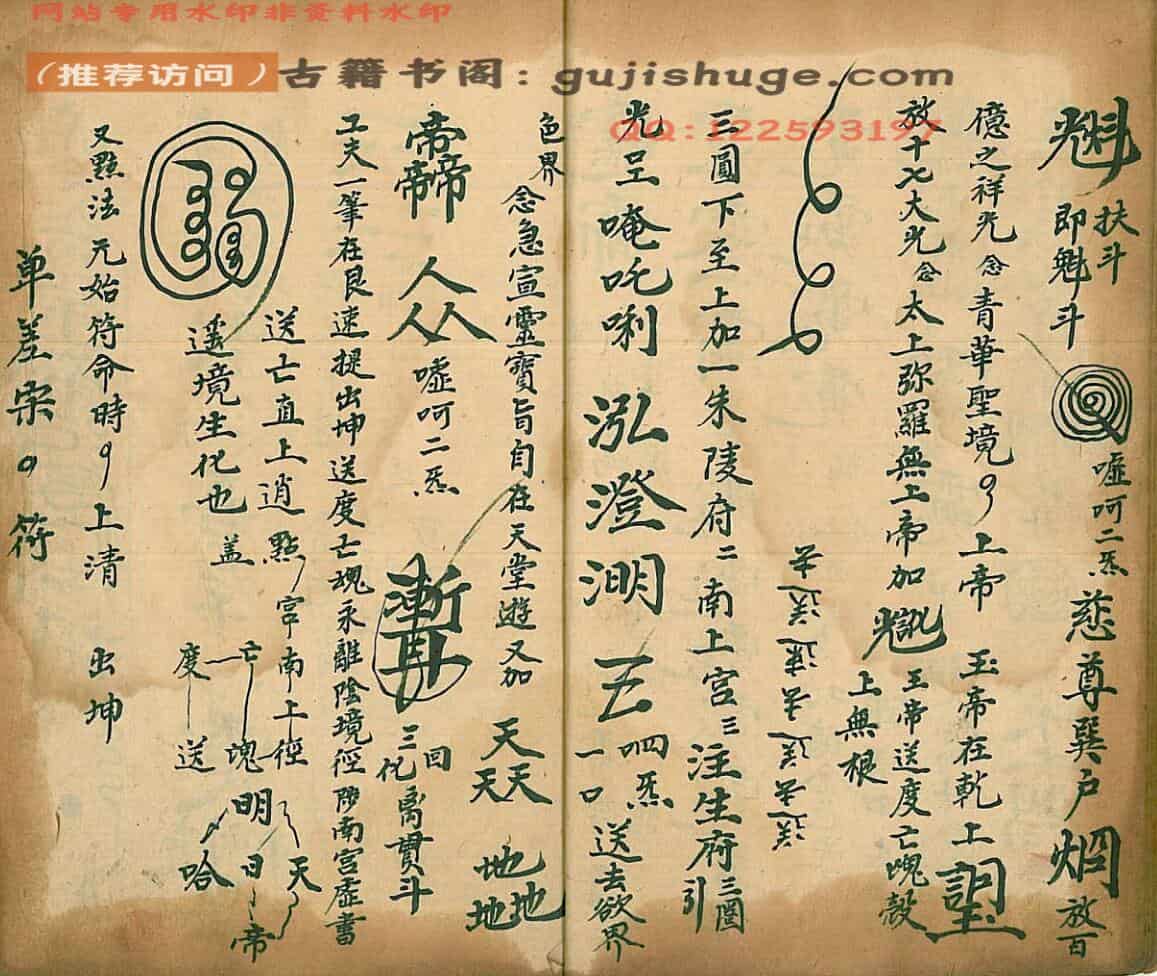 网站专用水印非资料水印
（推荐访问）古籍书阁：gujishuge.com
QQ:122593197
魁 扶斗 即魁斗 嘘呵二炁 慈尊巽户 烱 放百
億之祥光念青華聖境 上帝 玉帝在乾上
放十七大光念太上弥羅無上帝加 玉帝送度亡魂殼
上無根
送去送去速送去送去
三圓下至上加一朱陵府二南上宫三注生府三圈引
光呈唵吒唎 泓澄淵 五 一口 四炁 送去欲界
色界 念急宣靈寶旨自在天堂遊又加 天天天 地地地
帝帝帝帝 人人人 嘘呵二炁 三化回 离貫斗
工夫一筆在艮速提出坤送度亡魂永離陰境徑陟南宫虚書
送亡直上逍 點宫南上徑 天
遥境生化也 盖 亡魂 明日帝
度送哈
又點法元始符命時 上清 出坤
单差宗 符